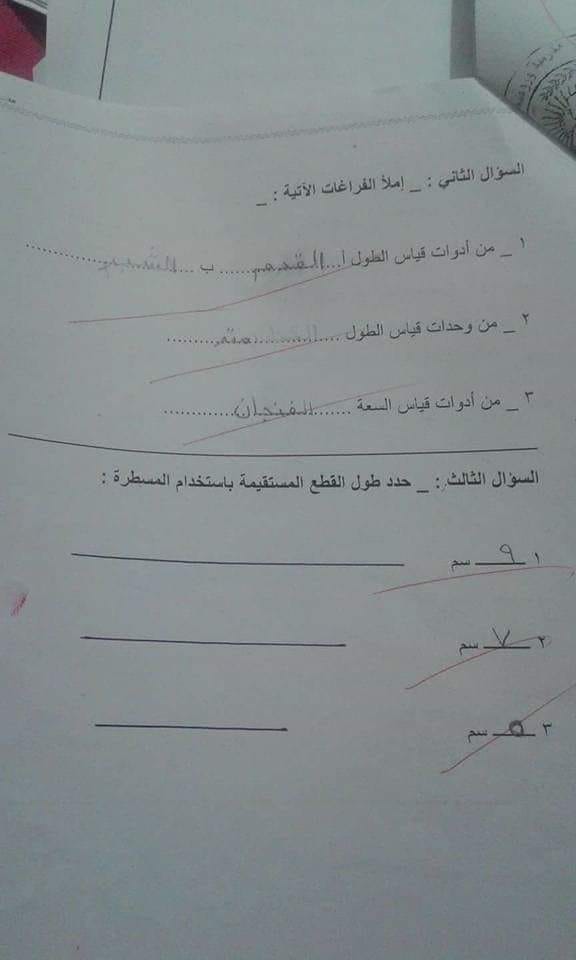 السؤال الثاني : _ إملأ الفراغات الآتية : _
١ _ من أدوات قياس الطول أ...القدم...... ب ...الشبر............
٢ _ من وحدات قياس الطول ..................
٣ _ من أدوات قياس السعة .......الفنجان............
السؤال الثالث : _ حدد طول القطع المستقيمة باستخدام المسطرة :
١ ٩ سم
٢ ٧ سم
٣ ٥ سم